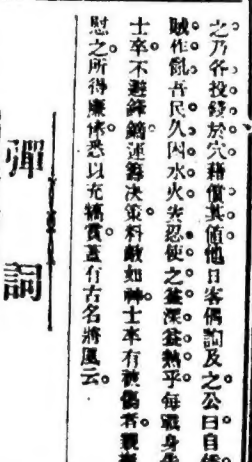 之乃各投錢於穴藉償其値他日客偶詢及之公曰自
賊作亂吾民久困水火矣忍使之益深益熱乎每戰身
士卒不避鋒鏑運籌決策料敵如神士卒有被傷者親
慰之所得廉俸悉以充犒賞蓋有古名將風云。
彈詞